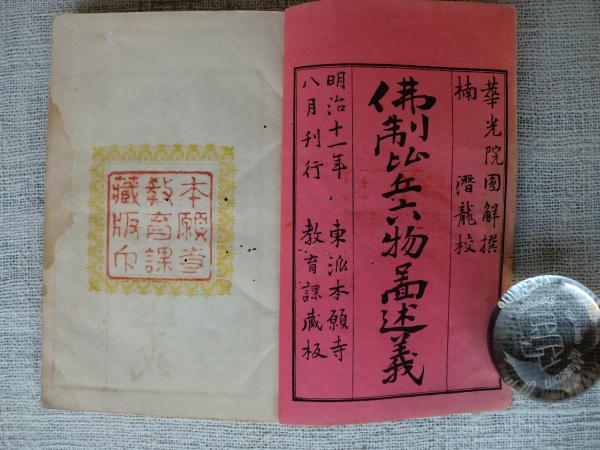 華光院圓解撰
楠潛龍校
佛制比丘六物圖述義
明治十一年
八月刊行
東派本願寺
教育課藏板
本願寺
教育課
藏版印